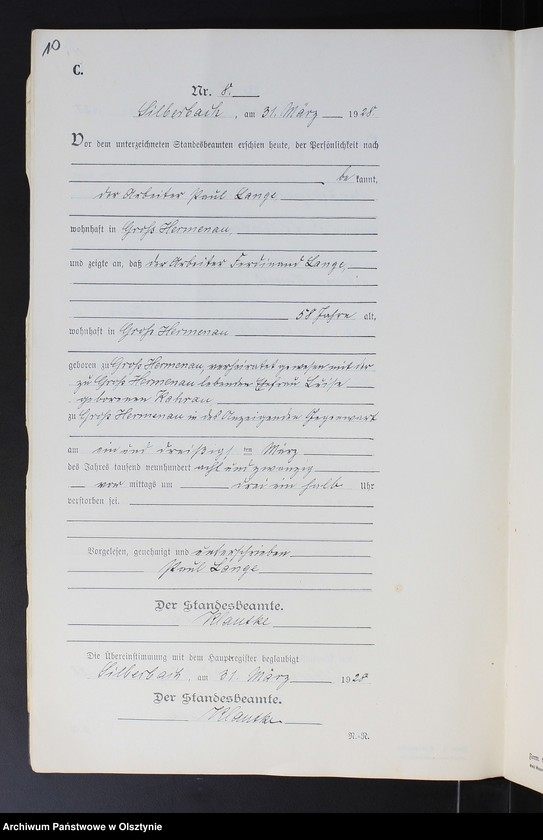 10
C.
Nr. 8.
Silberbach, am 31. März 1928
Vor dem unterzeichneten Standesbeamten erschien heute, der Persönlichkeit nach
bekannt,
der Arbeiter Paul Lange
wohnhaft in Groß Hermenau
und zeigte an, daß der Arbeiter Ferdinand Lange
58 Jahre alt,
wohnhaft in Groß Hermenau
geboren zu Groß Hermenau, verheiratet gewesen mit der
zu Groß Hermenau lebenden Ehefrau Luise
geborenen
zu Groß Hermenau in des Anzeigenden Gegenwart
am ein und dreißigsten März
des Jahres tausend neunhundert acht und zwanzig
vor mittags um drei ein halb Uhr
verstorben sei.
Vorgelesen, genehmigt und unterschrieben
Paul Lange
Der Standesbeamte.
Klautke
Die Übereinstimmung mit dem Hauptregister beglaubigt
Silberbach am 31. März 1928
Der Standesbeamte.
Klautke
R.-R.
Archiwum Państwowe w Olsztynie